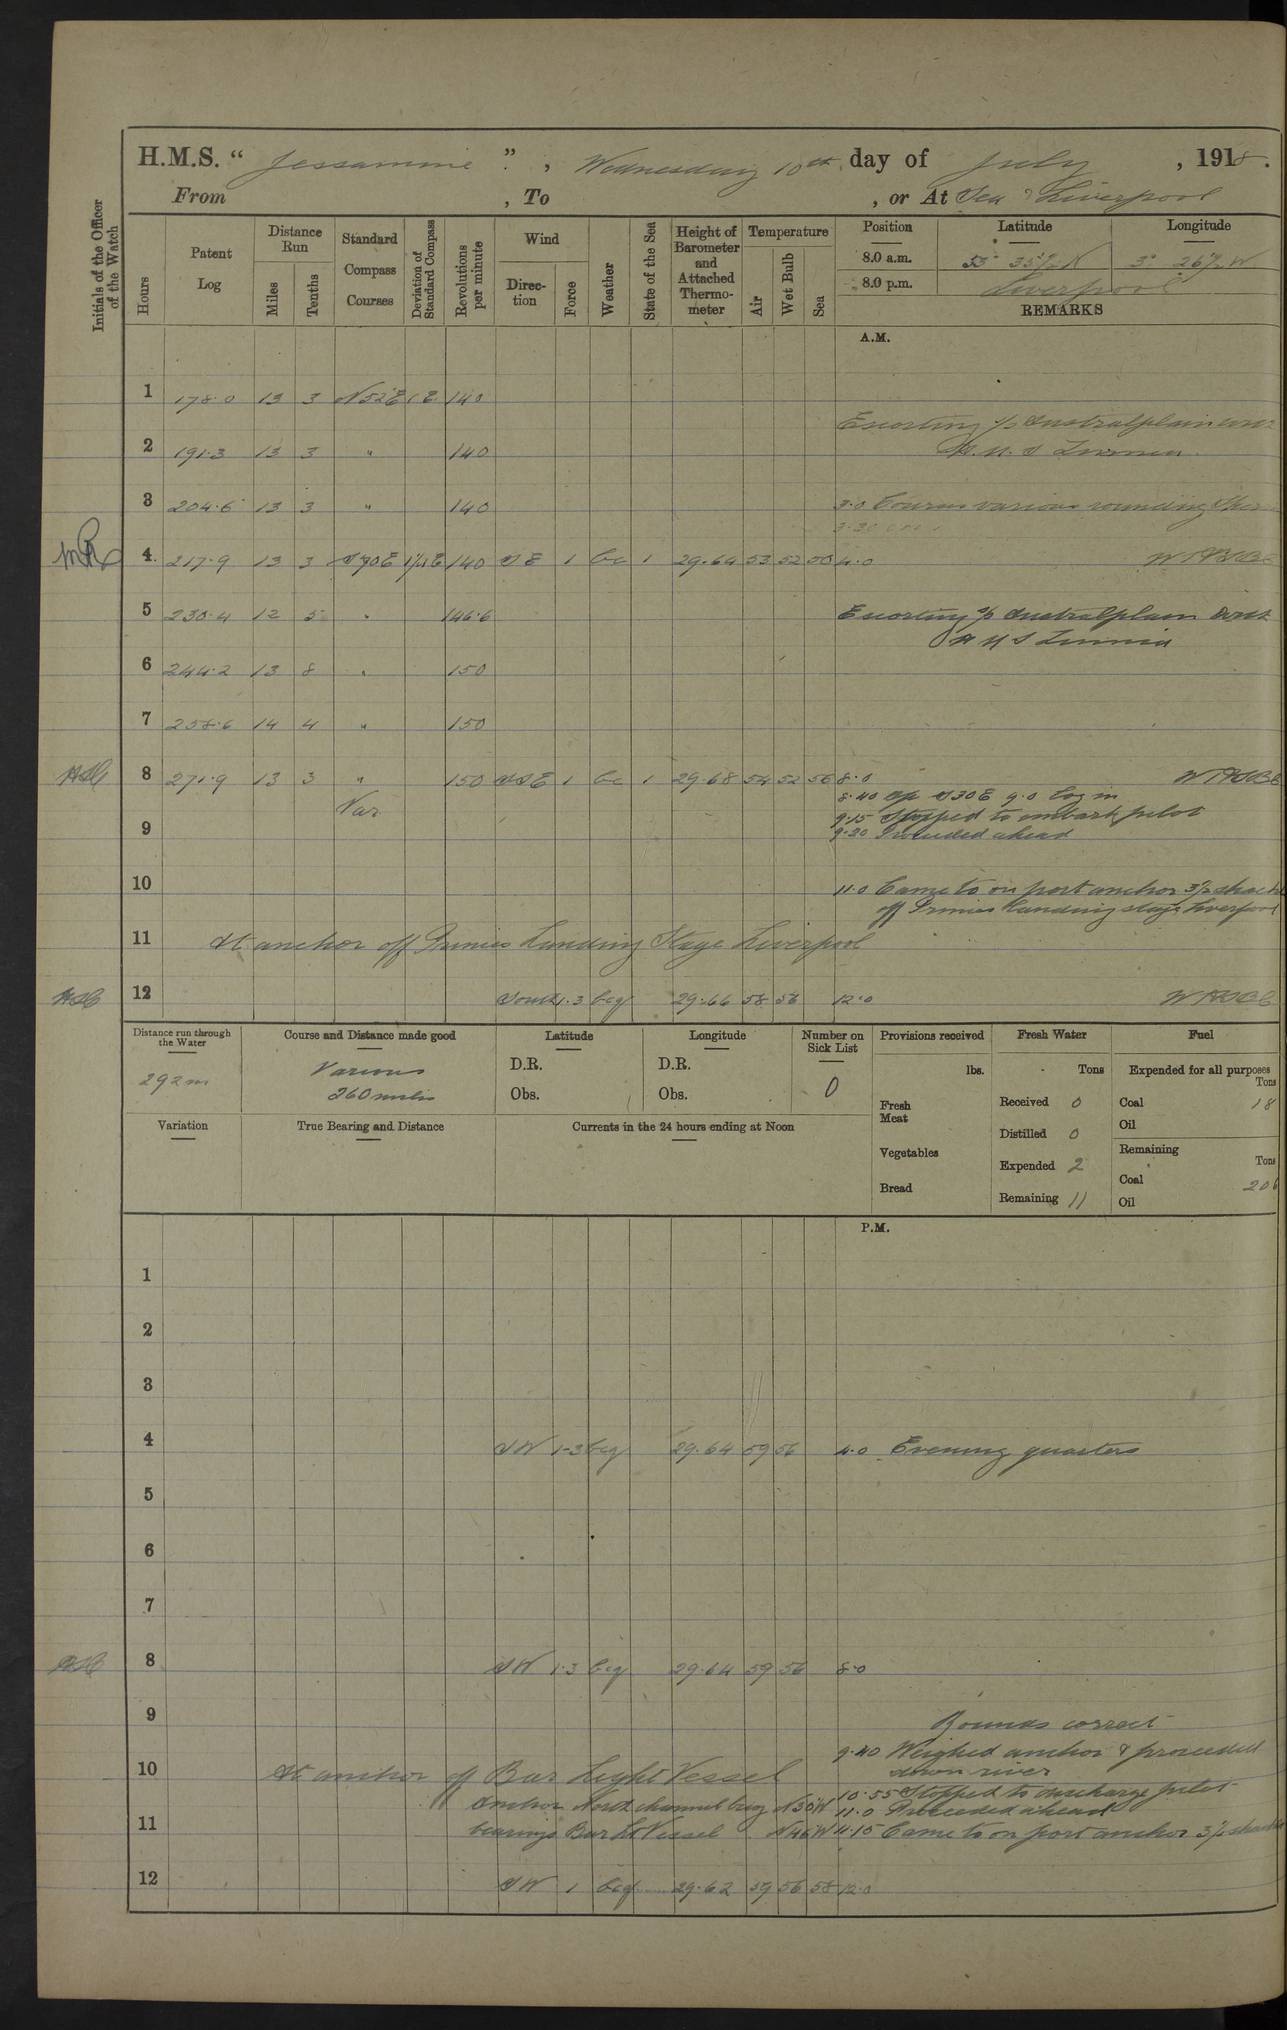 H.M.S. “ Jessamine ” , Wednesday 10th day of July , 1918 .
From , To , or At Sea & Liverpool
Initials of the Officer of the Watch
Hours
Patent Log
Distance Run
Miles
Tenths
Standard Compass Courses
Deviation of Standard Compass
Revolutions per minute
Wind
Direction
Force
Weather
State of the Sea
Height of Barometer and Attached Thermometer
Temperature
Air
Wet Bulb
Sea
Position Latitude Longitude
8.0 a.m. 53° 35½ N 3° 26½ W
8.0 p.m. Liverpool
REMARKS
A.M.
1 178.0 13 3 N52E 1E 140
Escorting s/s Australplain with
2 191.3 13 3 " 140
H.M.S
3 204.6 13 3 " 140 3.0 Courses various rounding
4 217.9 13 3 S70E 1½E 140 SE 1 bc 1 29.64 53 52 56 4.0
5 230.4 12 5 " 146.6 Escorting s/s Australplain with
H M S
6 244.2 13 8 " 150
7 258.6 14 4 " 150
8 271.9 13 3 " 150 SSE 1 bc 1 29.68 54 52 56 8.0
8.40 a/c S30E 9.0 Log in
Var
9.15 Stopped to embark pilot
9
9.20 Proceeded ahead
10 11.0 Came to on port anchor 3½ shackles
off Princes Landing stage Liverpool
11 At anchor off Princes Landing Stage Liverpool
12 South 1.3 bcq 29.66 58 56 12.0
Distance run through the Water
292m
Course and Distance made good
Various
260 miles
Latitude
D.R.
Obs.
Longitude
D.R.
Obs.
Number on Sick List
0
Provisions received
lbs.
Fresh Meat
Vegetables
Bread
Fresh Water
Tons
Received 0
Distilled 0
Expended 2
Remaining 11
Fuel
Expended for all purposes
Tons
Coal 18
Oil
Remaining
Tons
Coal 206
Oil
Variation
True Bearing and Distance
Currents in the 24 hours ending at Noon
P.M.
1
2
3
4 SW 1-3 bcq 29.64 59 56 4.0 Evening quarters
5
6
7
8 SW 1.3 bcq 29.64 59 56 8.0
9 Rounds correct
9.40 Weighed anchor & proceeded
down river
10 At anchor off Bar Light Vessel
10.55 Stopped to discharge pilot
Anchor North channel buoy N30W 11.0 Proceeded ahead
11 bearings Bar Lt Vessel N46W 11.15 Came to on port anchor 3½ shackles
12 SW 1 bcq 29.62 59 56 58 12.0